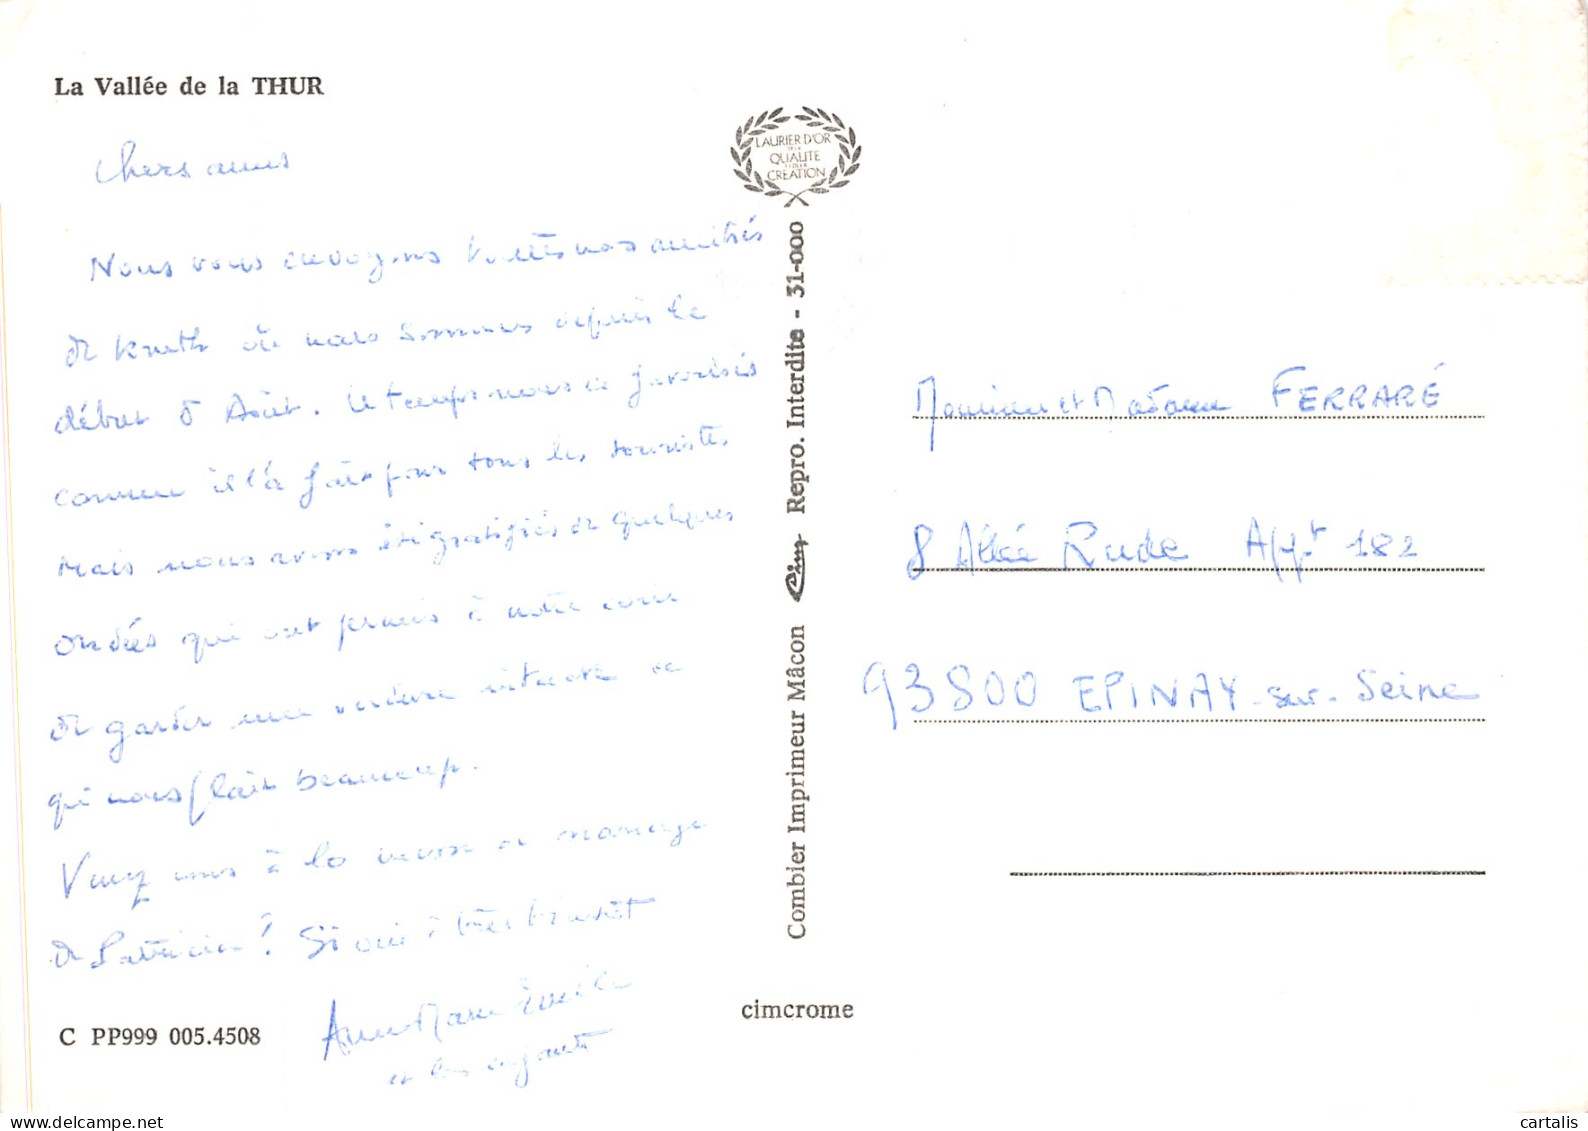 La Vallée de la THUR
Chers amis
Nous vous envoyons toutes nos amitiés
de Kruth où nous sommes depuis le
début d'Août. Le temps nous a favorisés
comme il l'a fait pour tous les touristes
mais nous avons été gratifiés de quelques
ondées qui ont permis à notre coin
de garder une verdure intense ce
qui nous plait beaucoup.
Venez vous à la messe de mariage
de Patricia? Si oui à très bientôt
Anne Marie Emile
et les enfants
C PP999 005.4508
LAURIER D'OR
DE LA
QUALITE
CREATION
Combier Imprimeur Mâcon Cim Repro. Interdite - 31-000
cimcrome
Monsieur et Madame FERRARÉ
8 Allée Rude Appt 182
93800 EPINAY-sur-Seine
cartalis